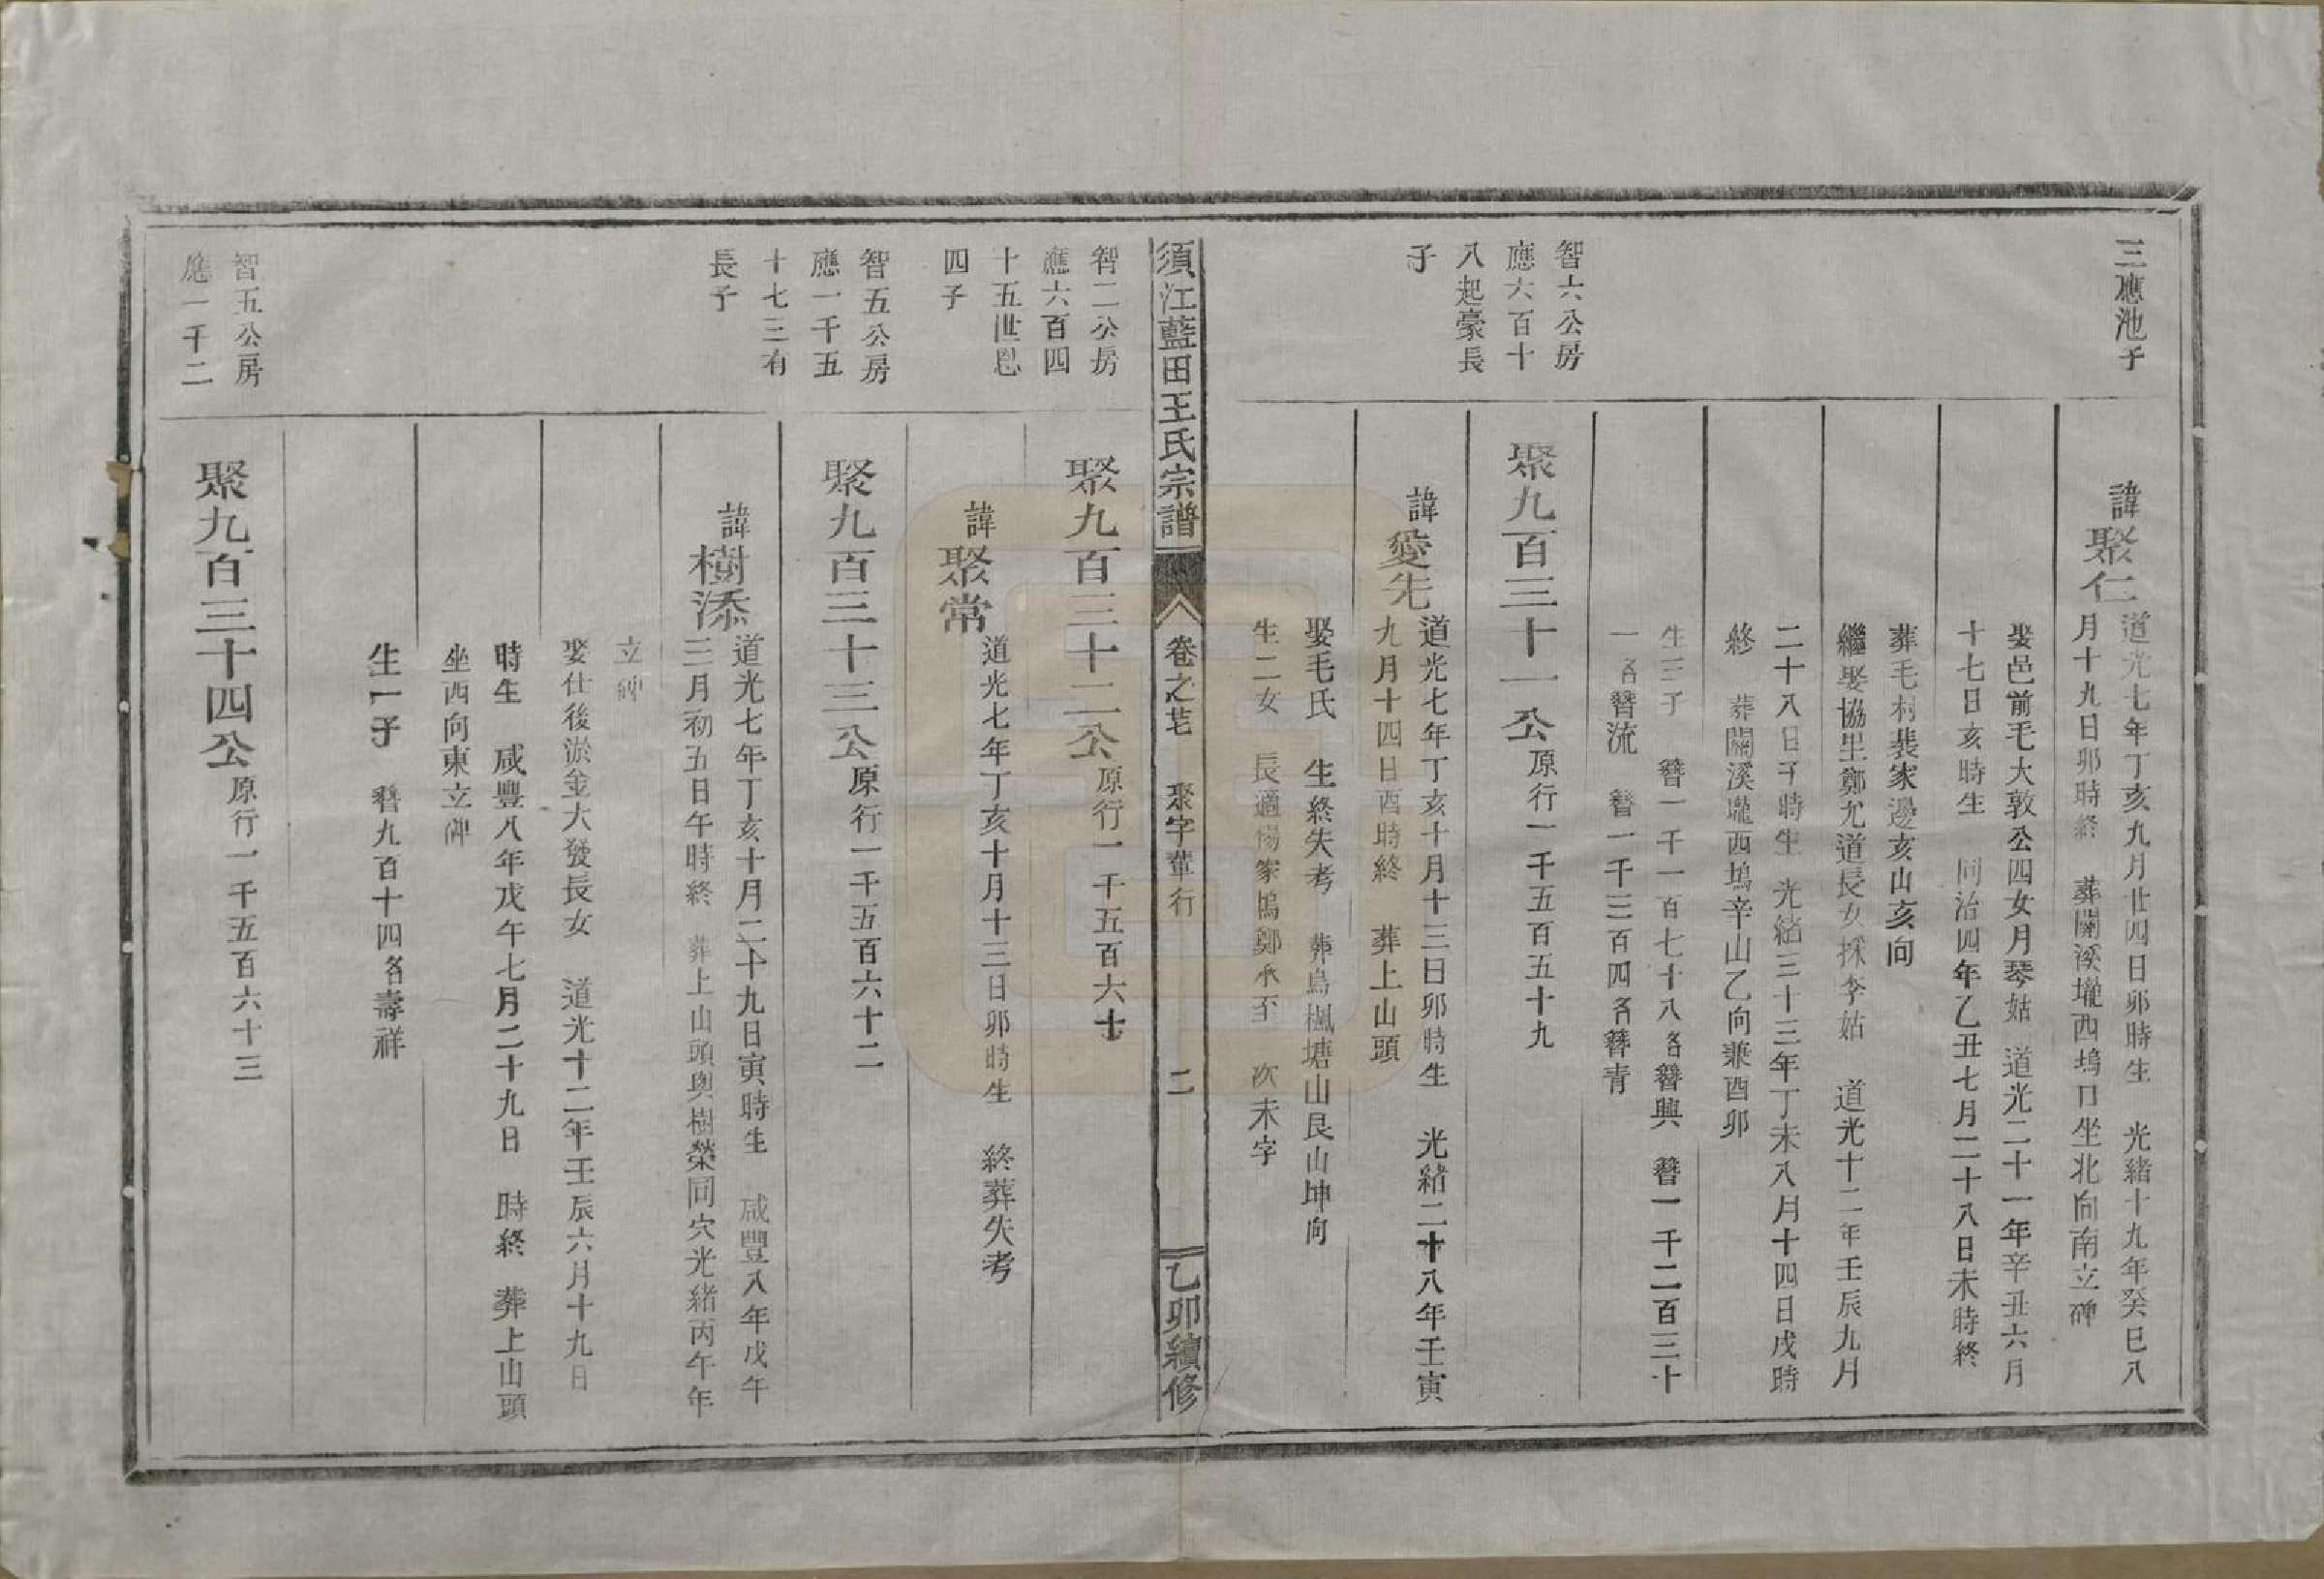 三應池子
諱聚仁
道光七年丁亥九月廿四日卯時生 光緒十九年癸巳八
月十九日卯時終 葬關溪壠西塢口坐北向南立碑
娶邑前毛大敦公四女月琴姑 道光二十一年辛丑六月
十七日亥時生 同治四年乙丑七月二十八日未時終
葬毛村裴家邊亥山亥向
繼娶協里鄭尤道長女採李姑 道光十二年壬辰九月
二十八日子時生 光緒三十三年丁未八月十四日戌時
終 葬關溪壠西塢辛山乙向兼酉卯
生三子 簪一千一百七十八名簪興 簪一千二百三十
一名簪流 簪一千三百四名簪青
智六公房
應六百十
八起豪長
子
聚九百三十一公原行一千五百五十九
諱愛先
道光七年丁亥十月十三日卯時生 光緒二十八年壬寅
九月十四日酉時終 葬上山頭
娶毛氏 生終失考 葬烏楓塘山艮山坤向
生二女 長適楊家塢鄭承至 次未字
須江藍田王氏宗譜
卷之 聚字輩行 二
乙卯續修
智二公房
應六百四
十五世恩
四子
聚九百三十二公原行一千五百六十
諱聚常
道光七年丁亥十月十三日卯時生 終葬失考
智五公房
應一千五
十七三有
長子
聚九百三十三公原行一千五百六十二
諱樹添
道光七年丁亥十月二十九日寅時生 咸豐八年戊午
三月初五日午時終 葬上山頭與樹榮同穴光緒丙午年
立碑
娶仕後淤金大發長女 道光十二年壬辰六月十九日
時生 咸豐八年戊午七月二十九日 時終 葬上山頭
坐西向東立碑
生一子 簪九百十四名壽祥
智五公房
應一千二
聚九百三十四公原行一千五百六十三